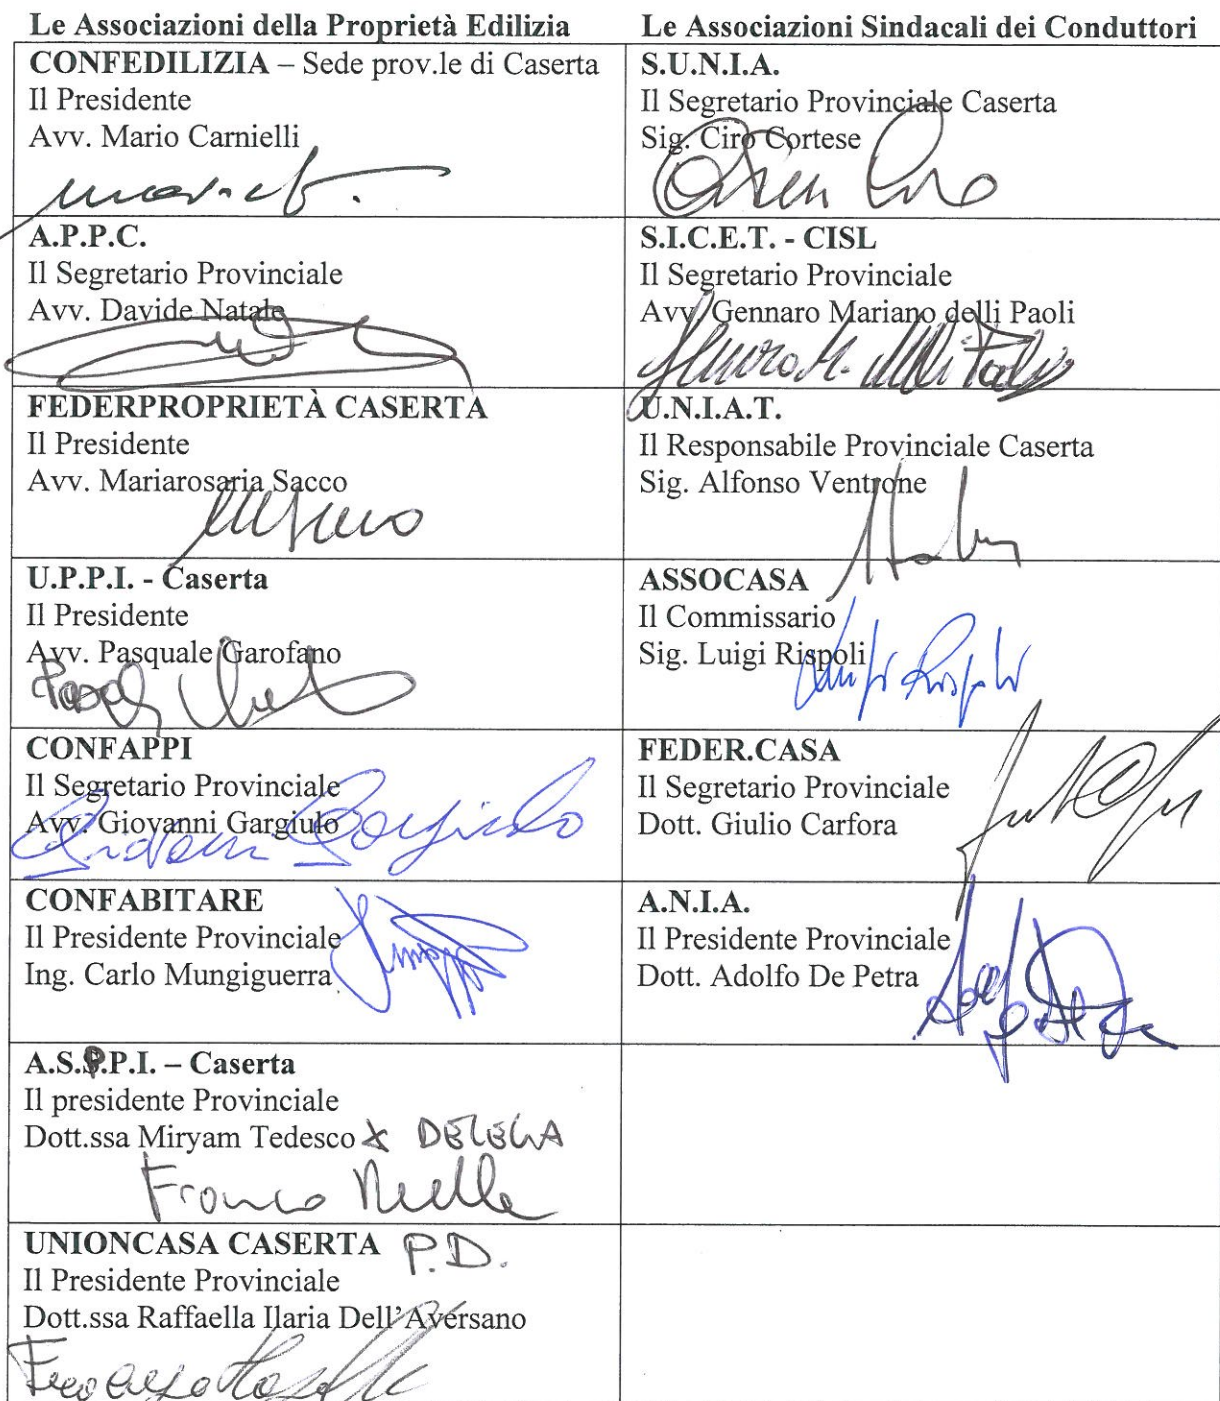 Le Associazioni della Proprietà Edilizia
Le Associazioni Sindacali dei Conduttori
CONFEDILIZIA – Sede prov.le di Caserta
Il Presidente
Avv. Mario Carnielli
S.U.N.I.A.
Il Segretario Provinciale Caserta
Sig. Ciro Cortese
A.P.P.C.
Il Segretario Provinciale
Avv. Davide Natale
S.I.C.E.T. - CISL
Il Segretario Provinciale
Avv Gennaro Mariano delli Paoli
FEDERPROPRIETÀ CASERTA
Il Presidente
Avv. Mariarosaria Sacco
U.N.I.A.T.
Il Responsabile Provinciale Caserta
Sig. Alfonso Ventrone
U.P.P.I. - Caserta
Il Presidente
Avv. Pasquale Garofano
ASSOCASA
Il Commissario
Sig. Luigi Rispoli
Luigi Rispoli
CONFAPPI
Il Segretario Provinciale
Avv. Giovanni Gargiulo
Giovanni Gargiulo
FEDER.CASA
Il Segretario Provinciale
Dott. Giulio Carfora
CONFABITARE
Il Presidente Provinciale
Ing. Carlo Mungiguerra
A.N.I.A.
Il Presidente Provinciale
Dott. Adolfo De Petra
A.S.P.P.I. – Caserta
Il presidente Provinciale
Dott.ssa Miryam Tedesco x DELEGA
Franco
UNIONCASA CASERTA P.D.
Il Presidente Provinciale
Dott.ssa Raffaella Ilaria Dell'Aversano